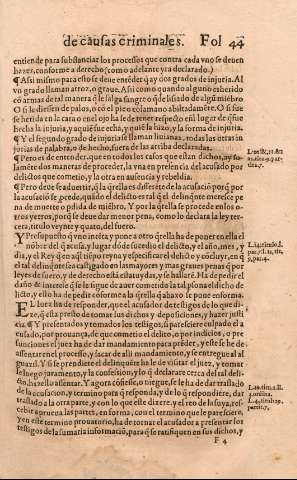 de causas criminales. Fol 44
entiende para substanciar los processos que contra cada vno se deuen
hazer, conforme a derecho (como adelante yra declarado.)
¶ Assi mismo para esso se deue entẽder q̃ ay dos grados de injuria. Al
vn grado llaman atroz, o graue. Assi como quando alguno es herido
cõ armas de tal manera q̃ le salga sangre o q̃de lisiado de algũ miẽbro
O si le diessen de palos, o cõ el pie o la mano abiltadamẽte. O si fues
se herida en la cara o en el ojo ha se de tener respecto en ſ lugar dõ q̃ fue
hecha la injuria, y aqui se hecha, y quiẽ la hizo, y la forma de injuria.
¶ Y el segundo grado de injuria se llaman liuianas. todas las otras in
jurias de palabra, o de hecho, fuera de las arriba declaradas.
¶ Pero es de entender, que en todos los casos que estan dichos, ay so
lamẽte dos maneras de proceder, la vna en presencia del acusado por
delictos que cometio, y la otra en ausencia y rebeldia.
¶ Pero deue se aduertir, q̃ la q̃rella es differẽte de la acusaciõ porq̃ por
la acusaciõ se procede, quãdo el delicto es tal q̃ el delinquẽte merece pe
na de muerte o pẽdida de miẽbro. Y por la q̃rella se procede en los o
tros yerros, porq̃ se deue dar menor pena, como lo declara la ley ter-
cera, titulo veynte y quatro, del fuero.
Y Presupuesto q̃ vno incita y pone a otro q̃rella ha de poner en ella el
nõbre del q̃ acusa, y lugar dõde sucedio el delicto, y el año, mes, y
dia, y el Rey q̃ en aq̃l tiẽpo reyna y especificar el delicto y cõcluyr, en q̃
el tal delinquẽte sea castigado en las mayores y mas graues penas q̃ por
leyes de fuero, y de derecho estã estatuydas, y se hallarẽ. Ha de pedir el
daño & interesse de q̃ se le sigue de auer cometido la tal psona el dicho de
licto, y esto ha de pedir en forma la q̃rella q̃ abaxo se pone en forma.
EL Iuez ha de responder, que el acusador de testigos de lo que di-
ze, q̃ esta presto de tomar sus dichos y deposiciones, y hazer justi
cia. ¶ Y presentados y tomados los testigos, si pareciere culpado el a
cusado, por prouança, de que cometio el delicto, o por indicios, o pre
sunciones el juez ha de dar mandamiento para prẽder, y este se ha de
assentar en el processo, y sacar de alli mandamiento, y se entregue al al
guazil. Y si se prendiere el delinquente ha le de visitar el juez, y tomar
le luego juramento, y la confession, y lo q̃ declarare cerca del tal deli-
cto, hazer lo assentar. Y agora cõfiesse, o niegue, se le ha de dar traslado
de la acusacion, y termino para q̃ responda, y de lo q̃ respondiere, dar
traslado a la otra parte, y con lo que este dixere, y el reo de su yra, res
cebir a prueua las partes, en forma, con el termino que le paresciere,
y en este termino prouatorio, ha de tornar el acusador a presentar los
testigos de la sumaria informaciõ, para q̃ se ratifiquen en sus dichos, y
F 4